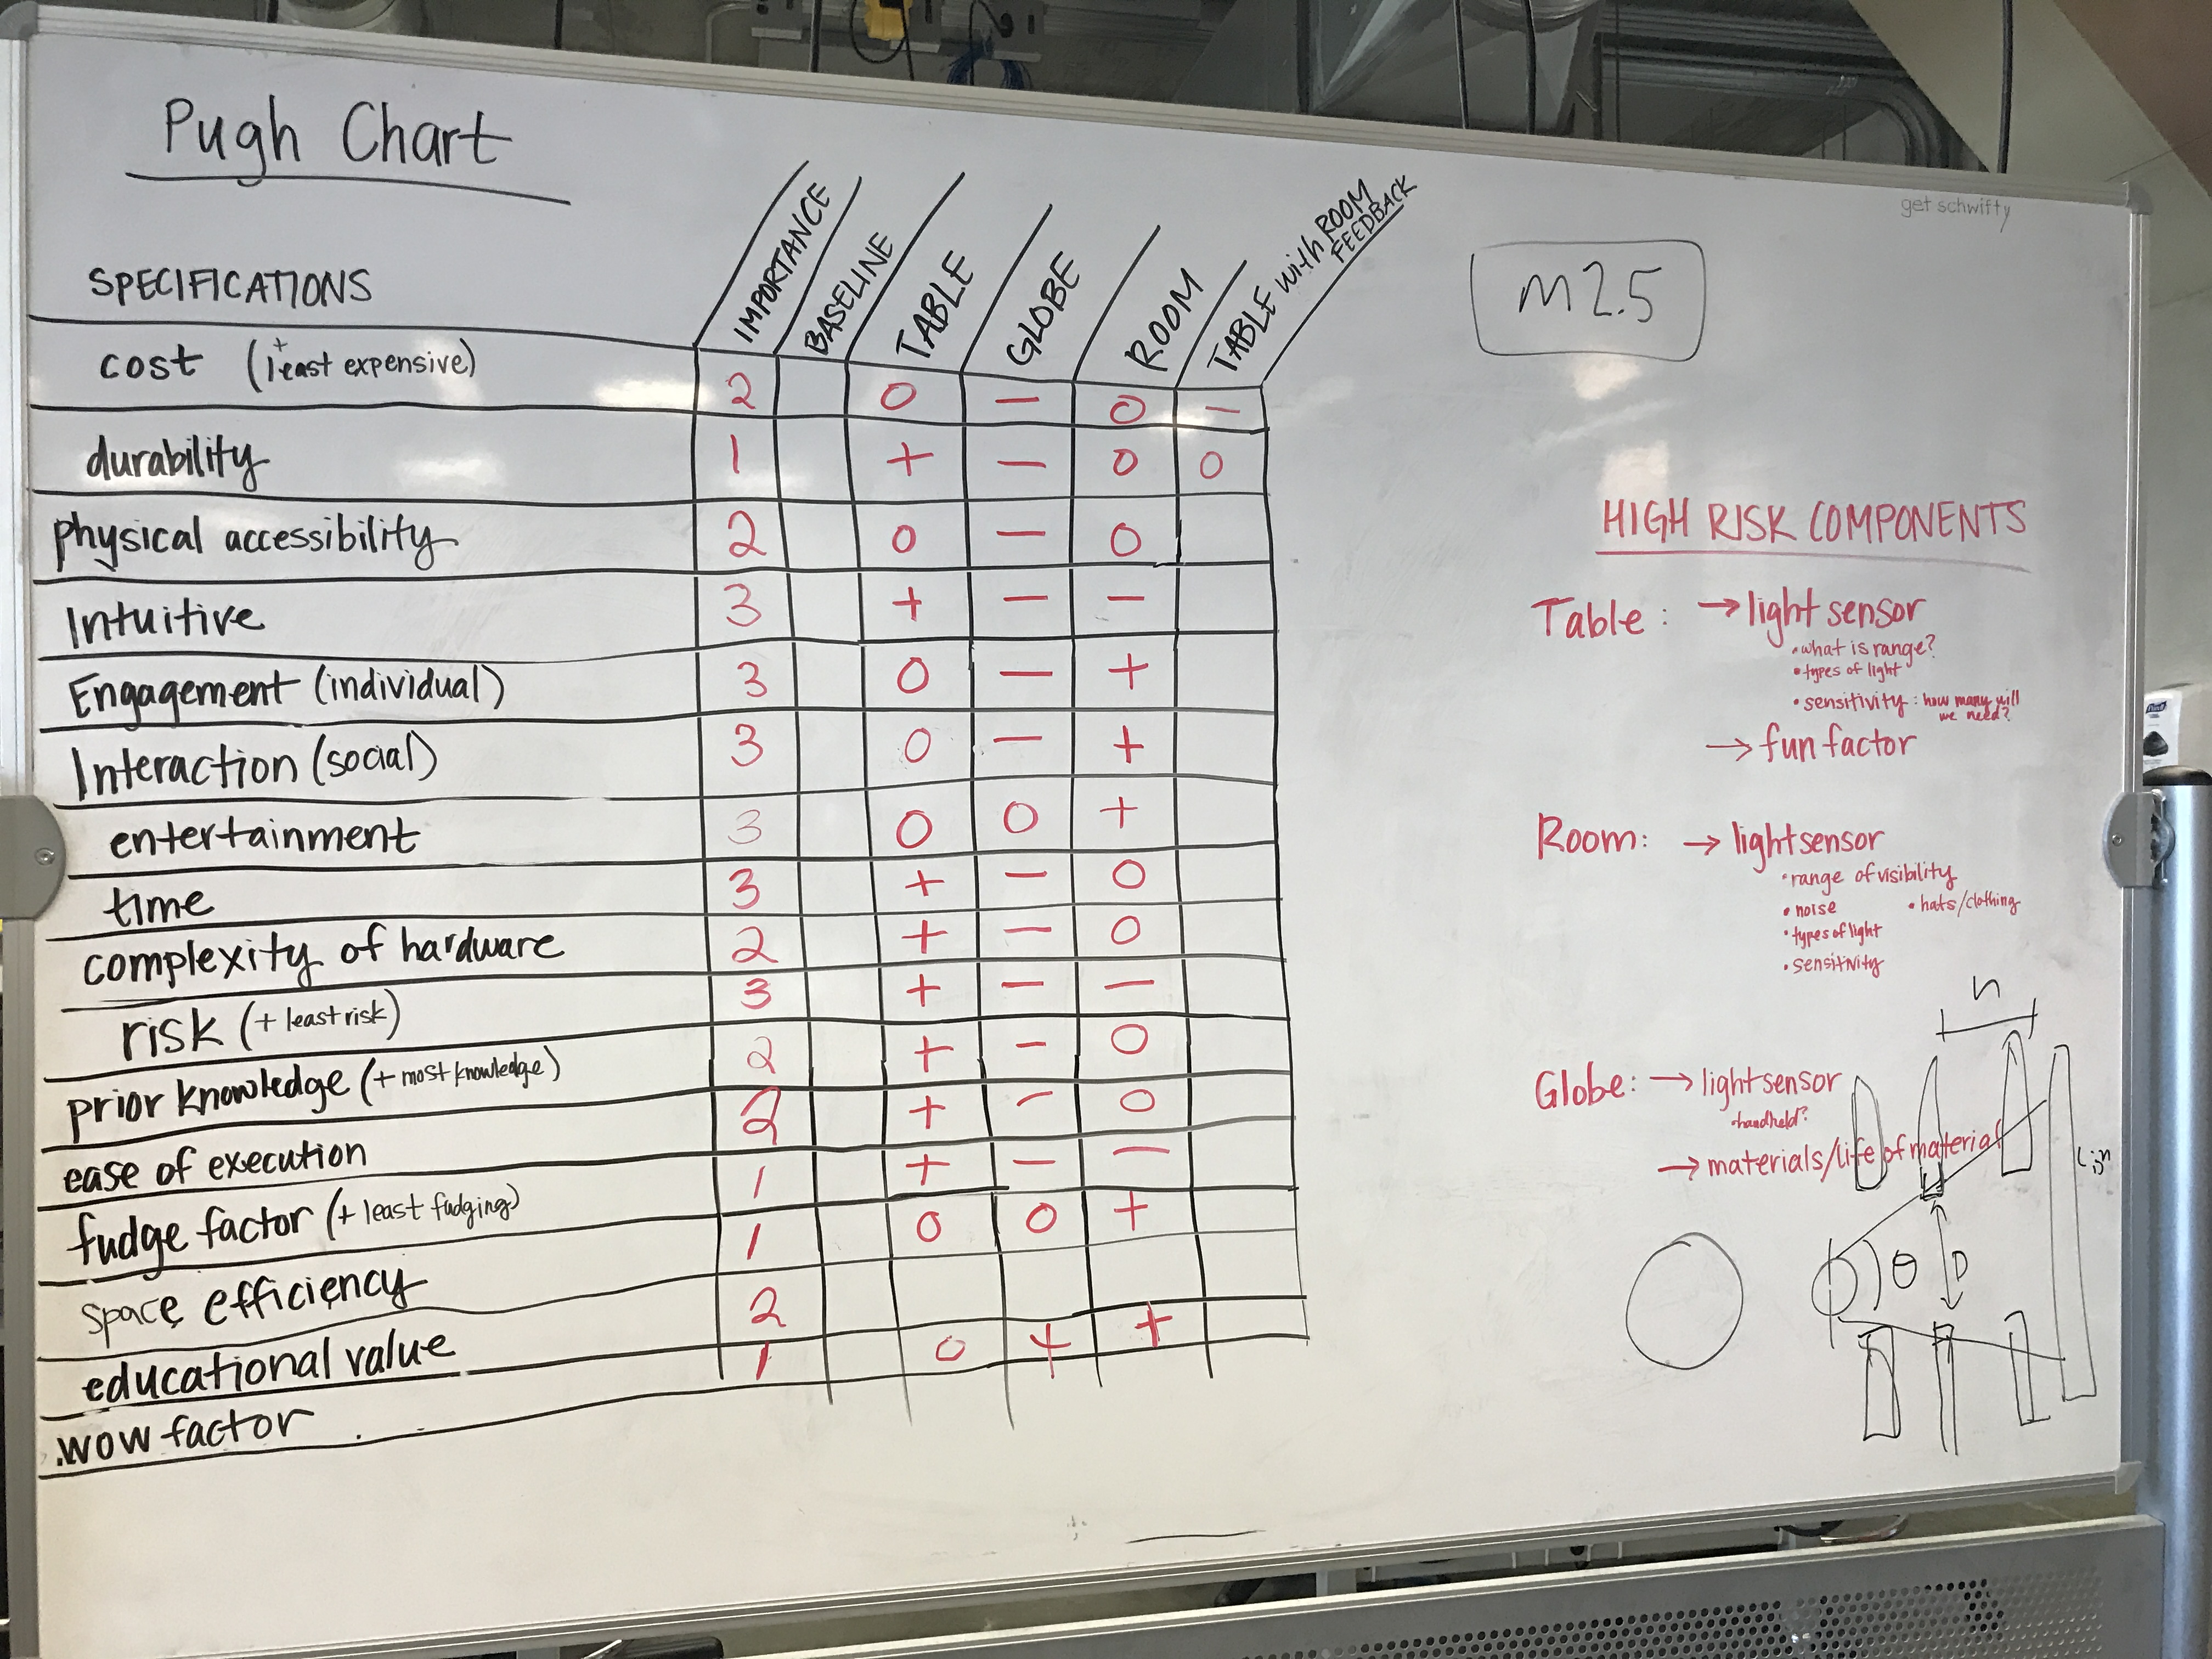 Pugh Chart
get schwifty
SPECIFICATIONS
IMPORTANCE
BASELINE
TABLE
GLOBE
ROOM
TABLE with ROOM
FEEDBACK
M2.5
cost (+ least expensive) 2 0 — 0 —
durability 1 + — 0 0
physical accessibility 2 0 — 0
Intuitive 3 + — —
Engagement (individual) 3 0 — +
Interaction (social) 3 0 — +
entertainment 3 0 0 +
time 3 + — 0
complexity of hardware 2 + — 0
risk (+ least risk) 3 + — —
prior knowledge (+ most knowledge) 2 + — 0
ease of execution 2 + — 0
fudge factor (+ least fudging) 1 + — —
space efficiency 1 0 0 +
educational value 2
wow factor 1 0 + +
HIGH RISK COMPONENTS
Table: → light sensor
• what is range?
• types of light
• sensitivity: how many will
we need?
→ fun factor
Room: → light sensor
• range of visibility
• noise • hats/clothing
• types of light
• sensitivity
Globe: → light sensor
• handheld?
→ materials/life of material
n
θ D